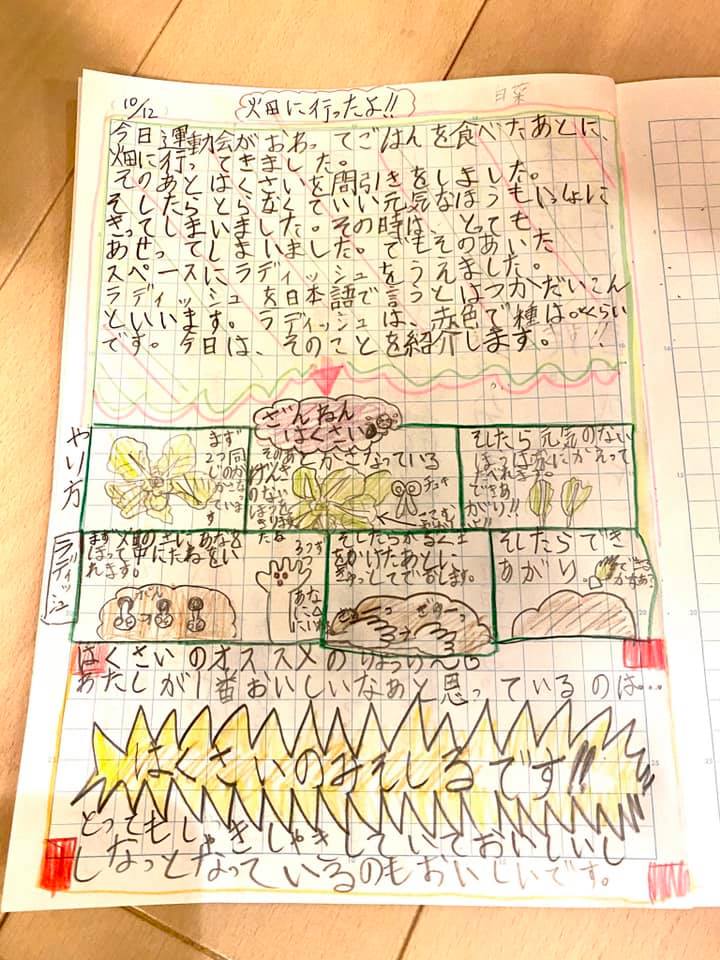 10/12
畑に行ったよ!!
日菜
今日運動会がおわってごはんを食べたあとに、
畑に行ってきました。
そのあとはくさいを間引きをしました。
そしたらとらなくていい元気なほうもいっしょに
きってしまいました。その時は、とっても
あせってしまいました。でもそのあいた
スペースにラディッシュをうえました。
ラディッシュを日本語で言うとはつかだいこん
といいます。ラディッシュは、赤色で種は
くらい!!
です。今日は、そのことを紹介します。
ざんねん
はくさい
やり方
まず
2つ
同じ
かさなって
とかさなっている
チョキ
そしたら元気のない
ほうは
たべれます。
できあ
がり!!
ラディッシュ
まず畑の土にあなを
ほって中にたねをい
れます。
ポん
3つず
あな
に
そしたらかるく土
をかけたあとに、
ぎゅっとして
ぎゅーっ
そしたらでき
あがり
はくさいのオススメのりょうり
わたしが1番おいしいなあと思っているのは…
はくさいのみそしるです!!
とってもしゃきしゃきしていておいしいし
しなっとなっているのもおいしいです。